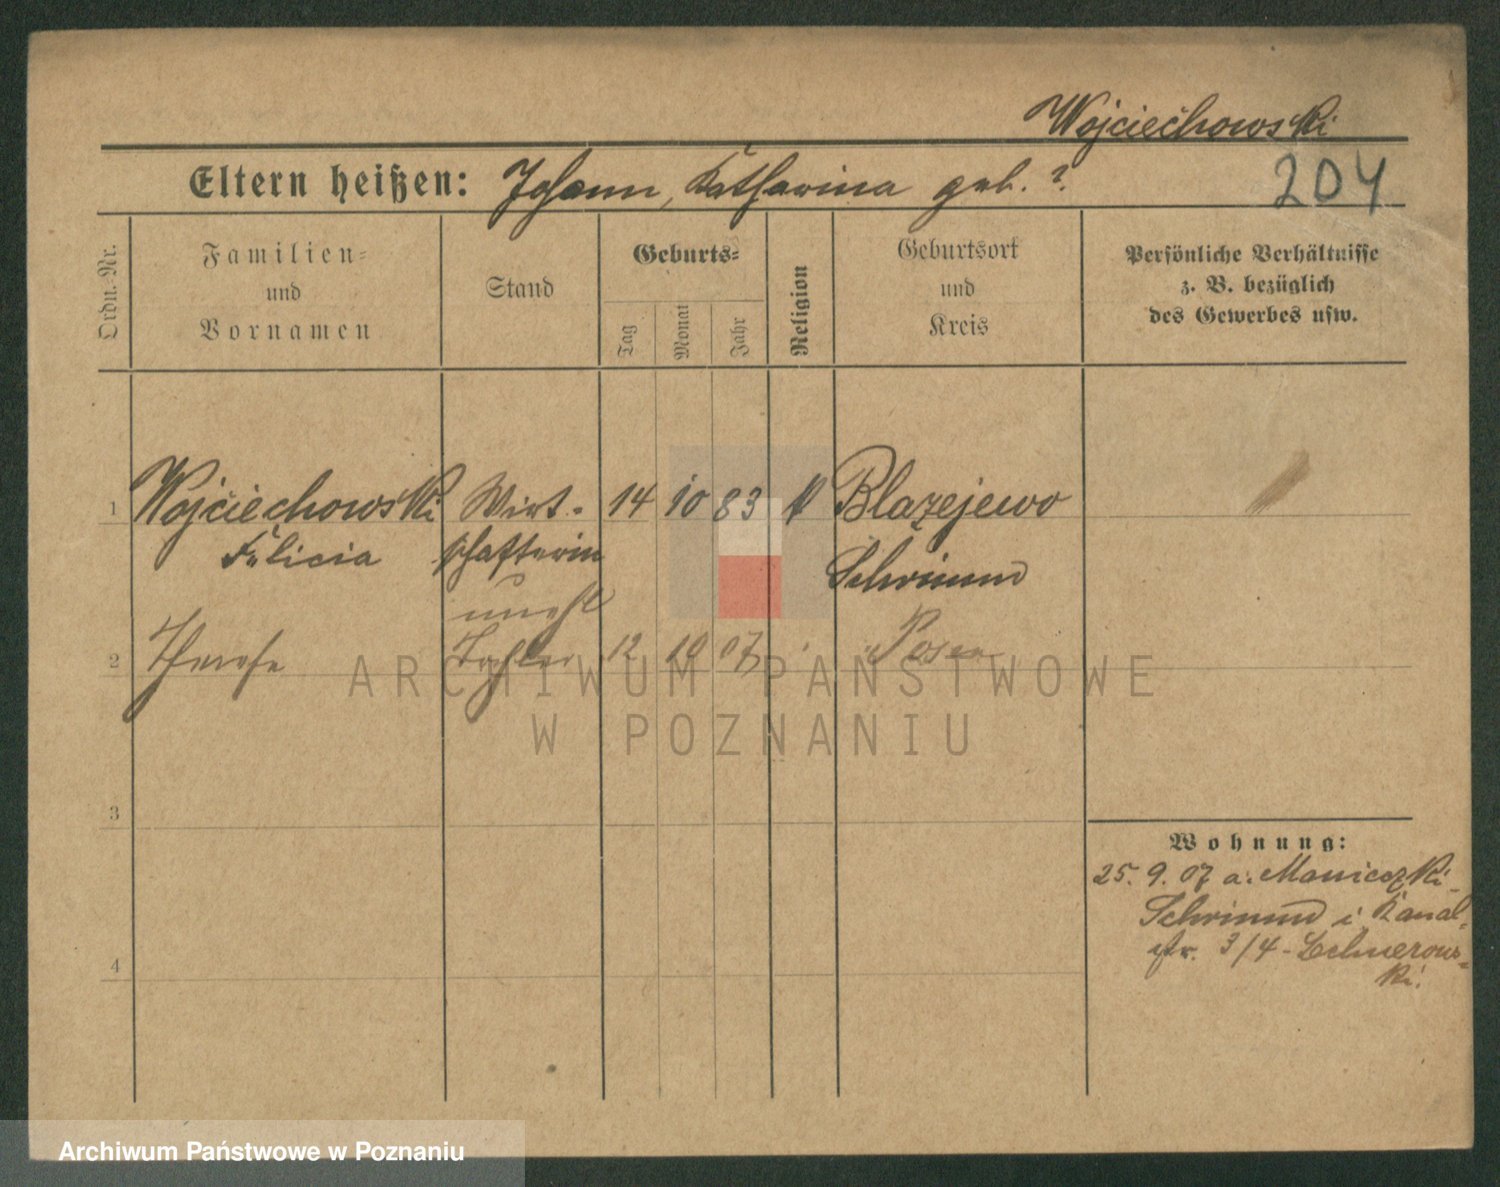 Wojciechowski
Eltern heißen: Johann, Katharina geb. ?
204
Ordn. Nr.
Familien-
und
Vornamen
Stand
Geburts-
Tag
Monat
Jahr
Religion
Geburtsort
und
Kreis
Persönliche Verhältnisse
z. B. bezüglich
des Gewerbes usw.
1 Wojciechowski Wirt- 14 10 83 k Blażejewo
Felicia schafterin Schrimm
unehl
2 Therese Tochter 12 10 07 Posen
ARCHIWUM PAŃSTWOWE
W POZNANIU
3
Wohnung:
25. 9. 07 a. Maniczki
Schrimm i Kanal-
str. 3/4 -
ki.
4
Archiwum Państwowe w Poznaniu